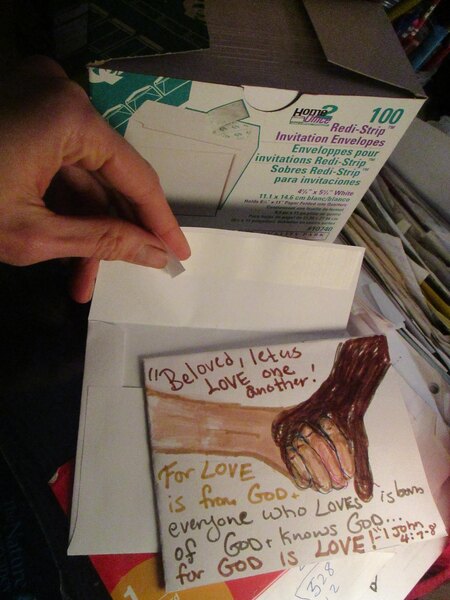 Home
Office
100
Redi-Strip™
Invitation Envelopes
Enveloppes pour
invitations Redi-Strip™
Sobres Redi-Strip™
para invitaciones
4⅜" x 5¾" White
11.1 x 14.6 cm blanc/blanco
#10740
"Beloved, let us
LOVE one
another!
For LOVE
is from GOD +
everyone who LOVES is born
of GOD + knows GOD...
for GOD IS LOVE!" 1 John
4:7-8
328
2